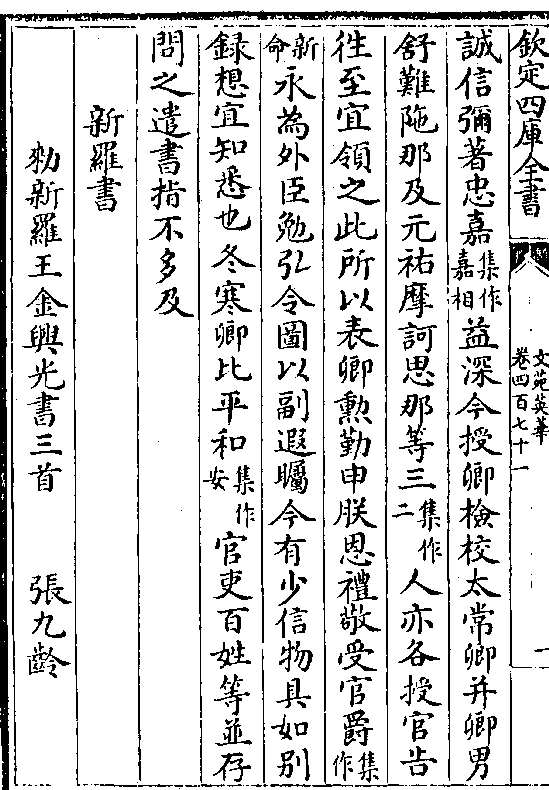 欽定四庫全書
文苑英華
卷四百七十一
一
誠信彌著忠嘉集作嘉相益深今授卿檢校太常卿并卿男
舒難陁那及元祐摩訶思那等三集作二人亦各授官告
徃至宜領之此所以表卿勲勤申朕恩禮敬受官爵集作
新命永為外臣勉弘令圖以副遐矚今有少信物具如别
録想宜知悉也冬寒卿比平和集作安官吏百姓等並存
問之遣書指不多及
新羅書
勑新羅王金興光書三首 張九齡